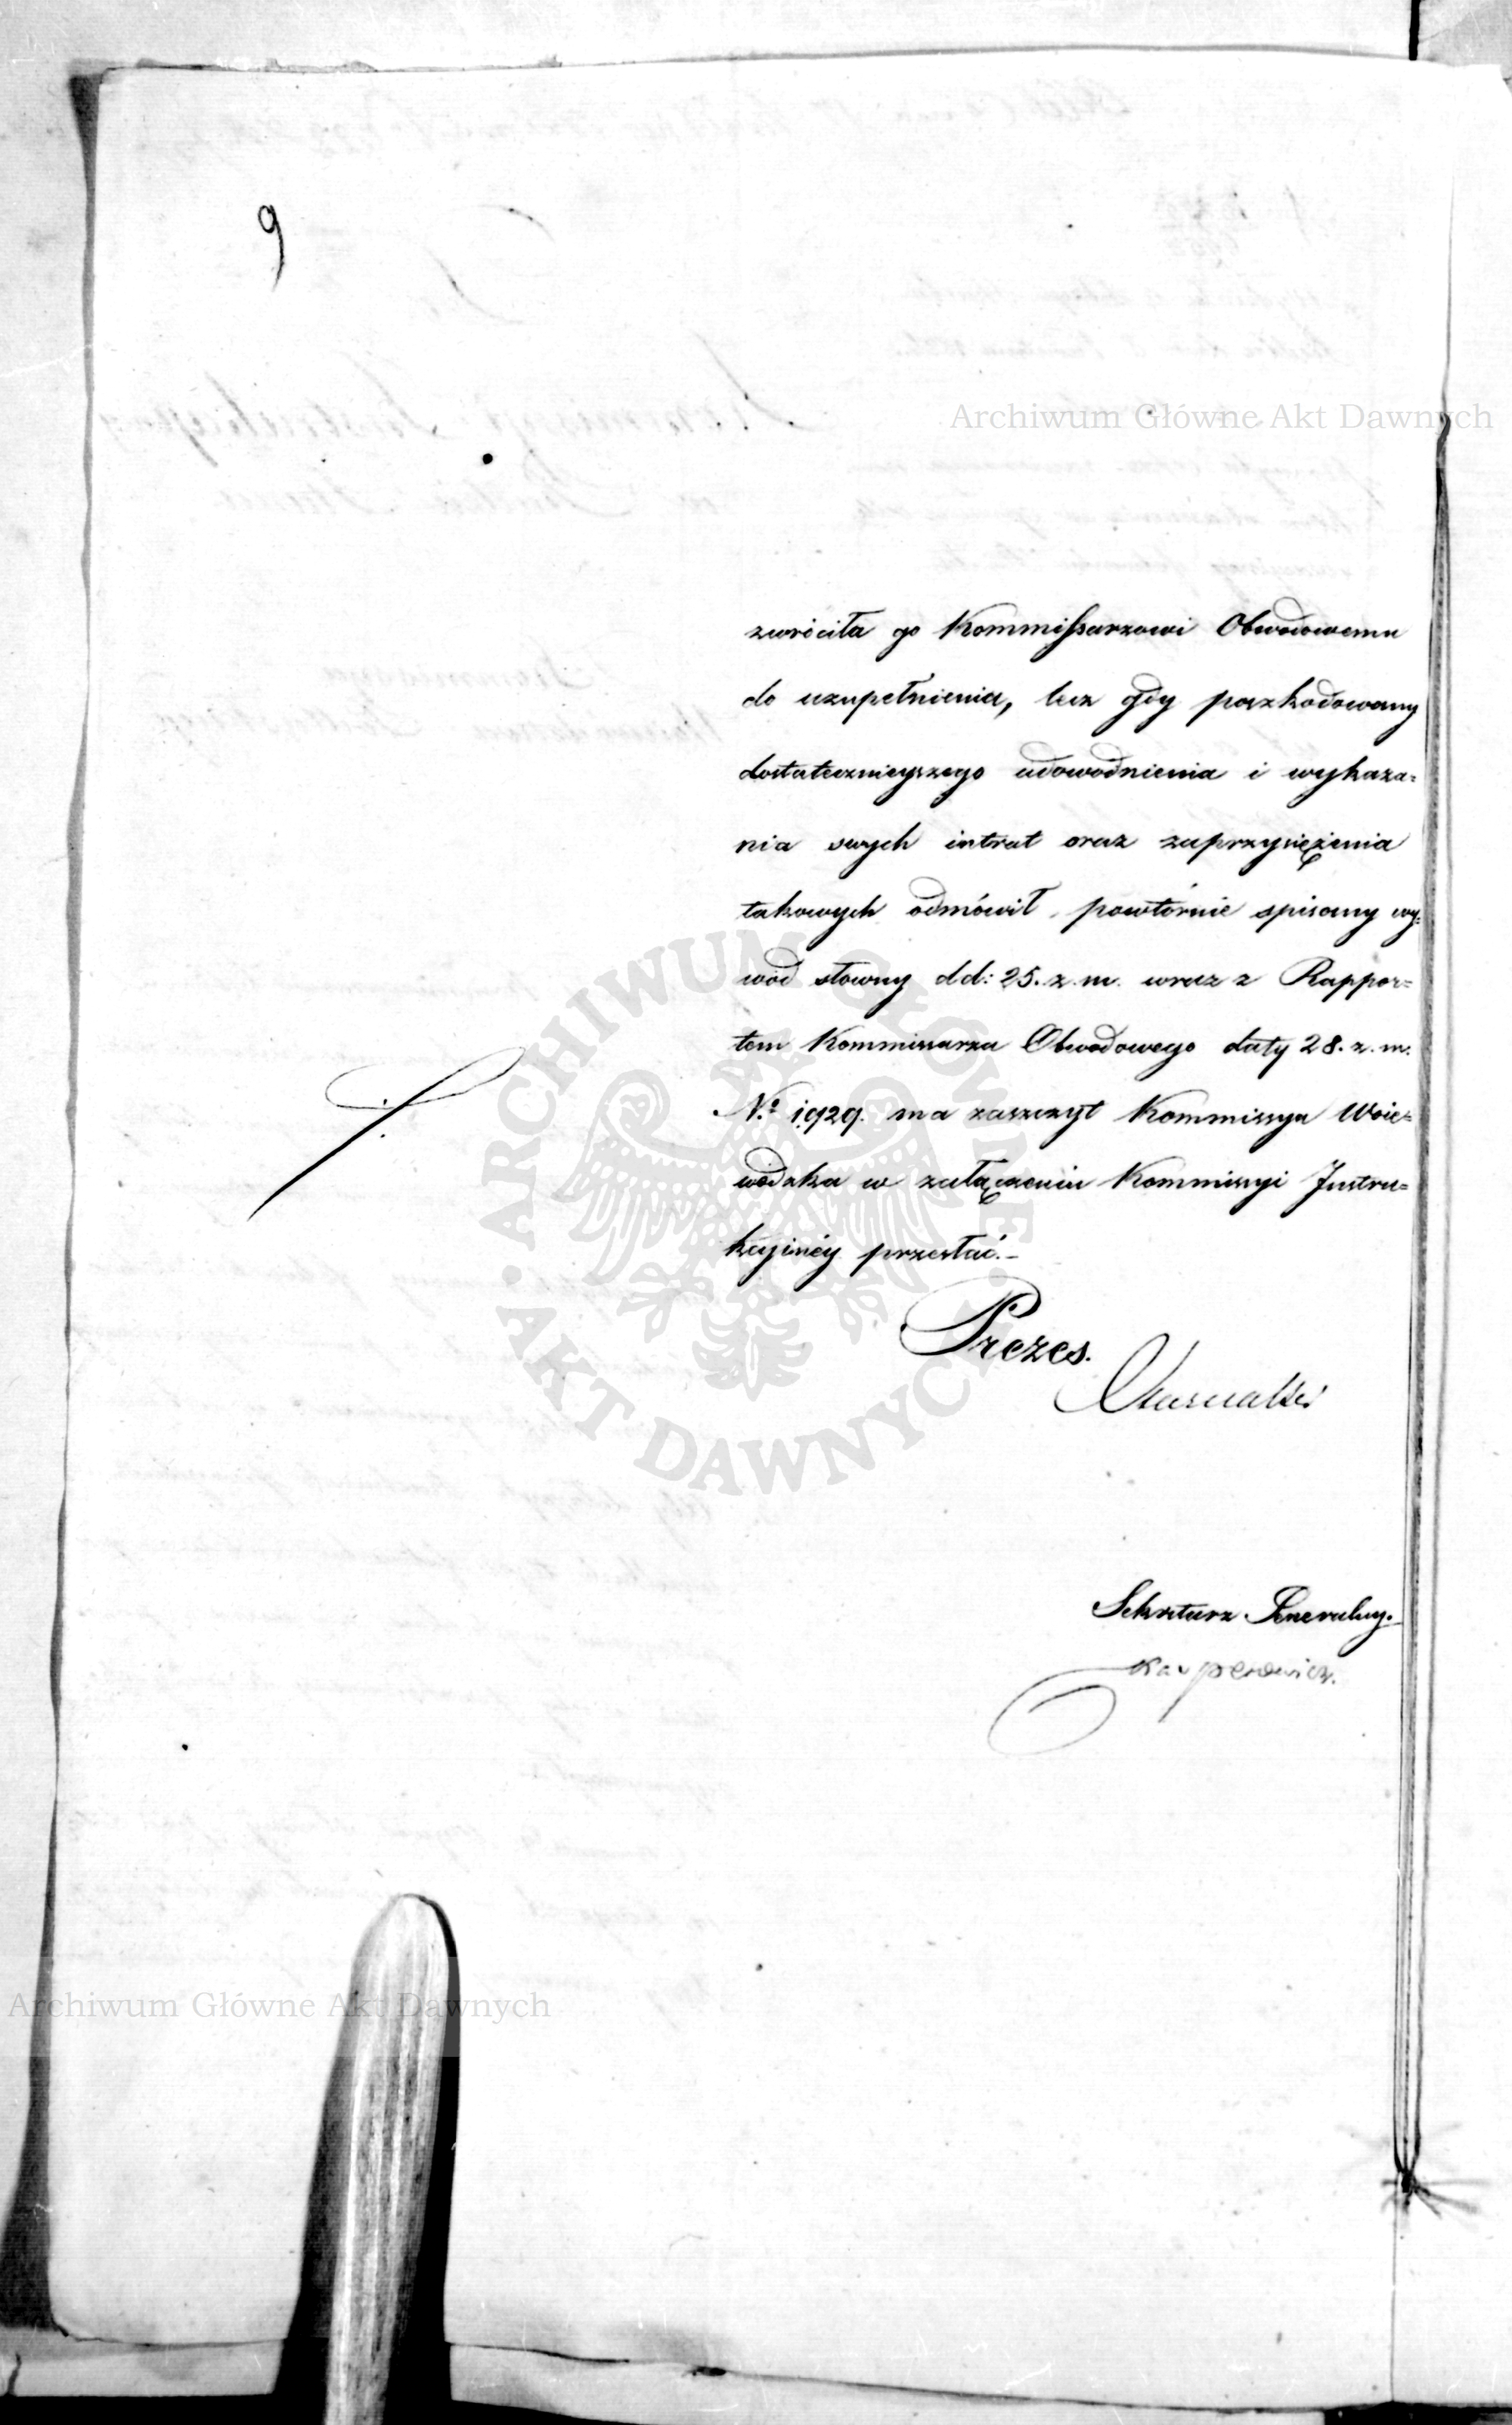 9
Archiwum Główne Akt Dawnych
zwróciła go Kommissarzowi Obwodowemu
do uzupełnienia, lecz gdy poszkodowany
dostatecznieyszego udowodnienia i wykaza=
nia swych intrat oraz zaprzysiężenia
takowych odmówił, powtórnie spisany wy=
wód słowny dd: 25. z. m. wraz z Rappor=
tem Kommissarza Obwodowego daty 28. z. m.
N.º 1929. ma zaszczyt Kommissya Woie=
wódzka w załączeniu Kommissyi Instru=
kcyinéy przesłać.–
Prezes.
Sekretarz Generalny.
Kasperowicz.
ARCHIWUM GŁÓWNE · AKT DAWNYCH ·
Archiwum Główne Akt Dawnych